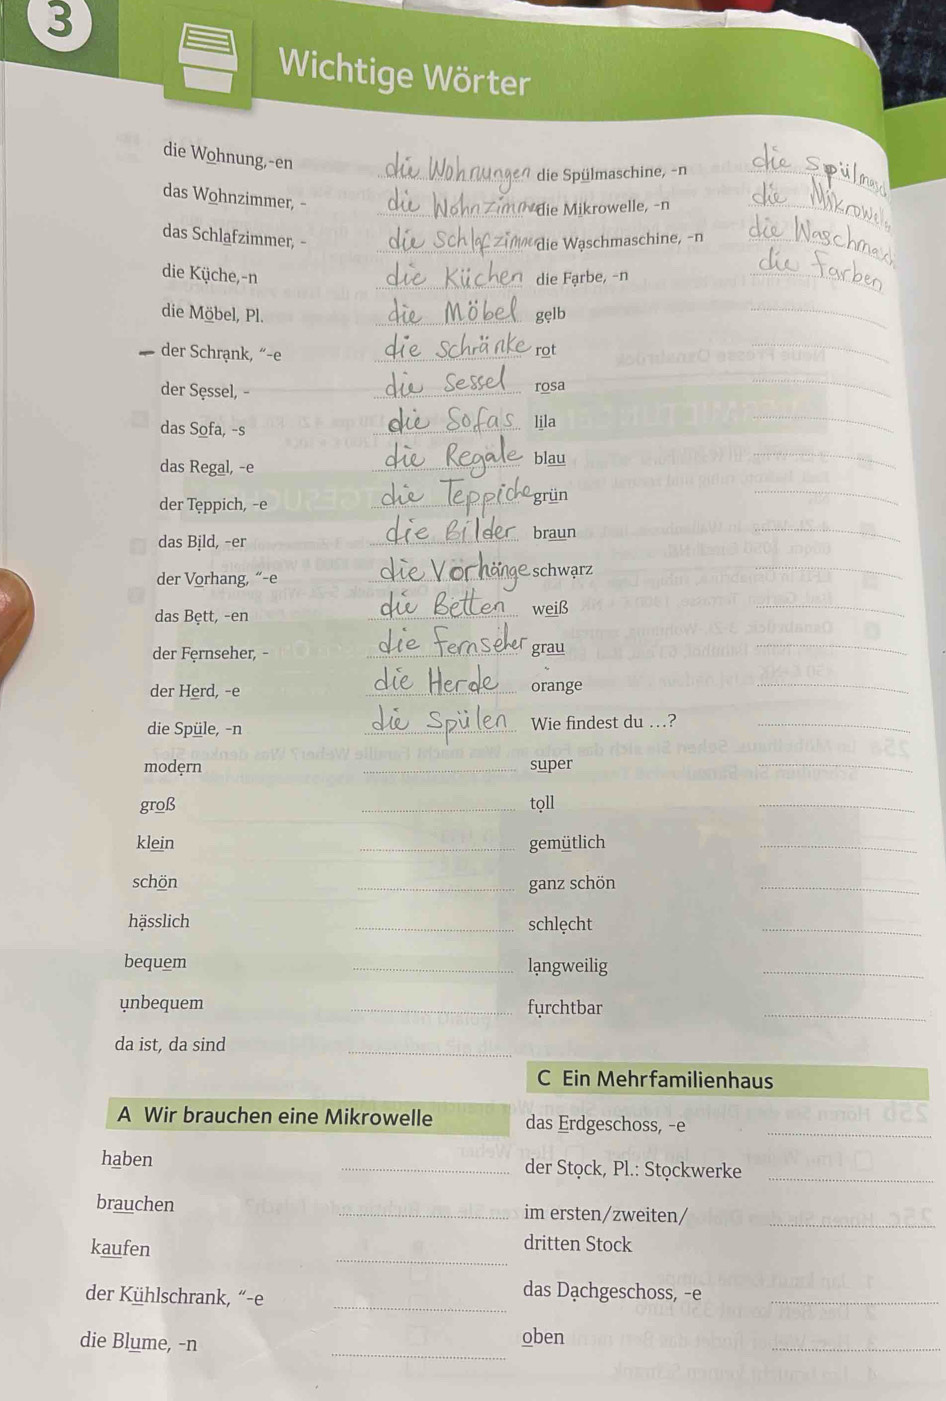 3
Wichtige Wörter
die Wohnung,-en die Wohnungen
das Wohnzimmer, - die Wohnzimme
das Schlafzimmer, - die Schlafzimme
die Küche,-n die Küchen
die Möbel, Pl. die Möbel
der Schrank, “-e die Schränke
der Sessel, - die Sessel
das Sofa, -s die Sofas
das Regal, -e die Regale
der Teppich, -e die Teppiche
das Bild, -er die Bilder
der Vorhang, “-e die Vorhänge
das Bett, -en die Betten
der Fernseher, - die Fernseher
der Herd, -e die Herde
die Spüle, -n die Spülen
modern
groß
klein
schön
hässlich
bequem
unbequem
da ist, da sind
A Wir brauchen eine Mikrowelle
haben
brauchen
kaufen
der Kühlschrank, “-e
die Blume, -n
die Spülmaschine, -n die Spülmasch
die Mikrowelle, -n die Mikrowellen
die Waschmaschine, -n die Waschmasch
die Farbe, -n die Farben
gelb
rot
rosa
lila
blau
grün
braun
schwarz
weiß
grau
orange
Wie findest du ...?
super
toll
gemütlich
ganz schön
schlecht
langweilig
furchtbar
C Ein Mehrfamilienhaus
das Erdgeschoss, -e
der Stock, Pl.: Stockwerke
im ersten/zweiten/
dritten Stock
das Dachgeschoss, -e
oben